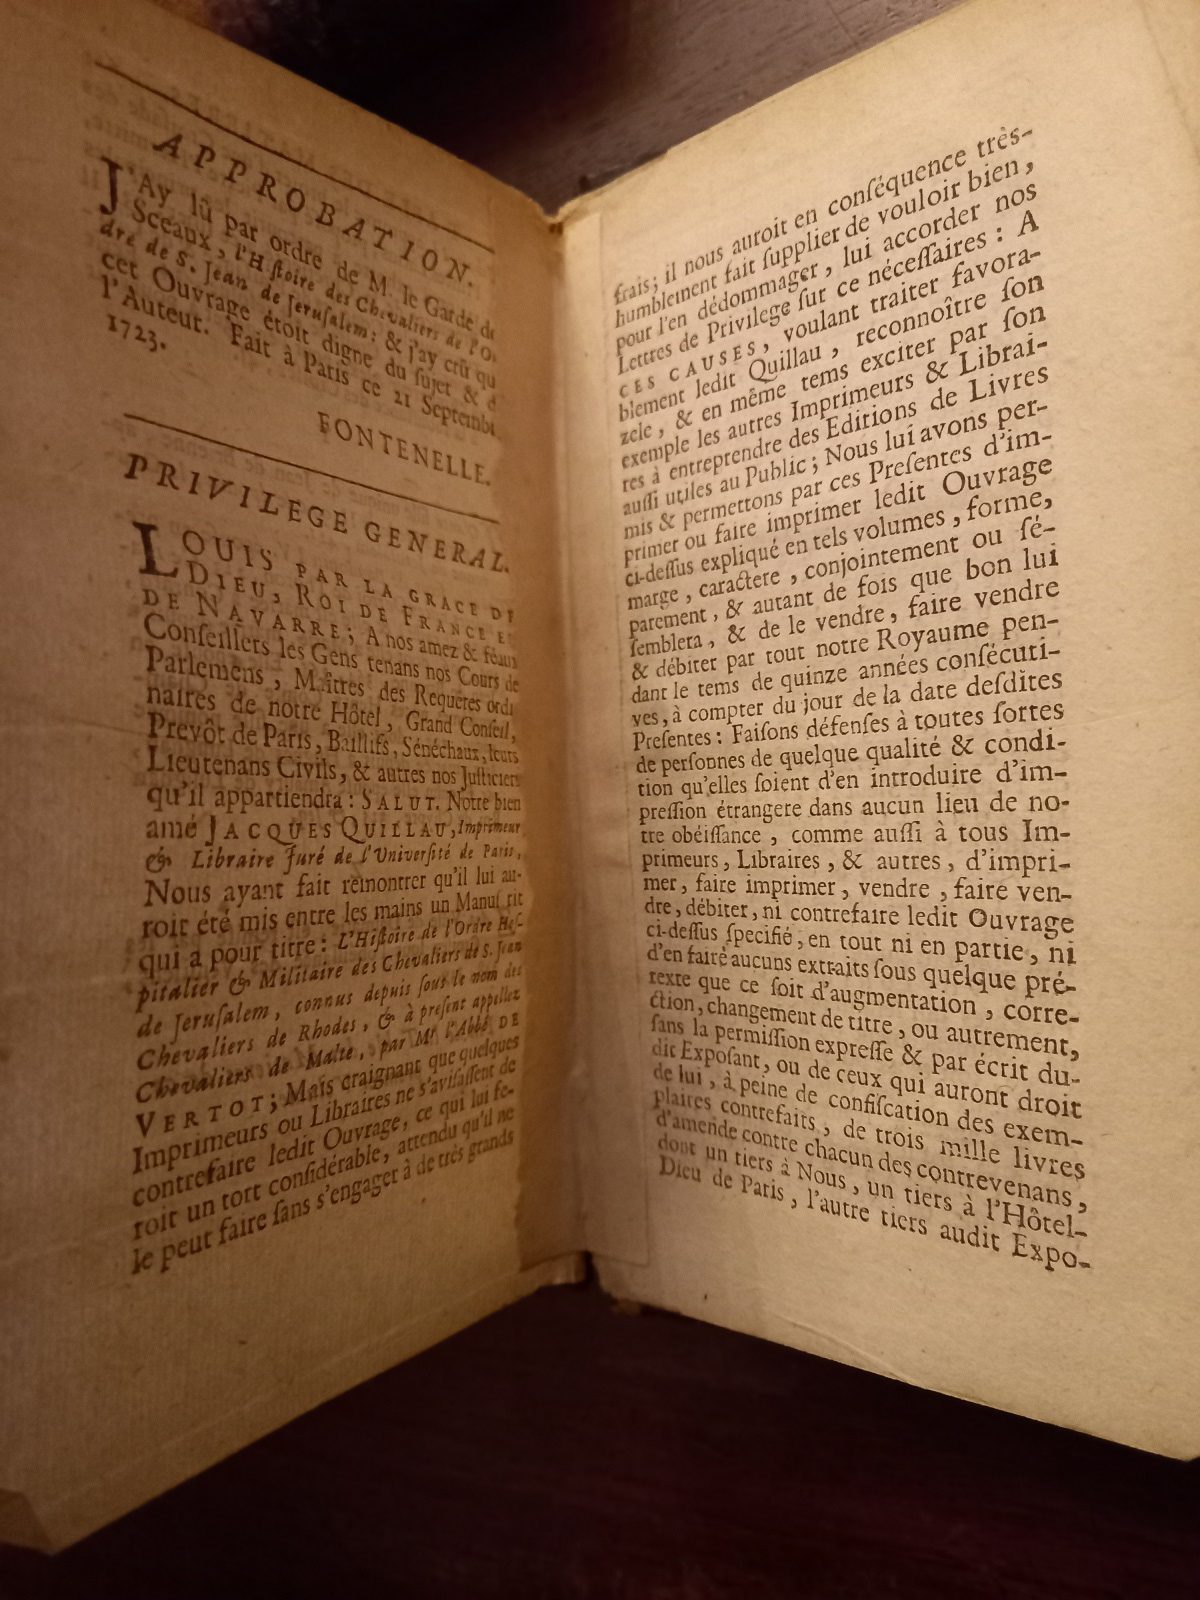 APPROBATION.
J'Ay lû par ordre de M. le Garde de
Sceaux, l'Histoire des Chevaliers de l'O
dre de S. Jean de Jerusalem: & j'ay crû qu
cet Ouvrage étoit digne du sujet & d
l'Auteur. Fait à Paris ce 21 Septemb
1723.
FONTENELLE.
PRIVILEGE GENERAL.
LOUIS PAR LA GRACE DE
DIEU, ROI DE FRANCE E
DE NAVARRE; A nos amez & féaux
Conseillers les Gens tenans nos Cours de
Parlemens, Maîtres des Requêtes ordi
naires de notre Hôtel, Grand Conseil,
Prevôt de Paris, Baillifs, Sénéchaux, leurs
Lieutenans Civils, & autres nos Justiciers
qu'il appartiendra: SALUT. Notre bien
amé JACQUES QUILLAU, Imprimeur
& Libraire Juré de l'Université de Paris,
Nous ayant fait remontrer qu'il lui au-
roit été mis entre les mains un Manuscrit
qui a pour titre: L'Histoire de l'Ordre Hos-
pitalier & Militaire des Chevaliers de S. Jean
de Jerusalem, connus depuis sous le nom des
Chevaliers de Rhodes, & à present appellez
Chevaliers de Malte, par Mr. l'Abbé DE
VERTOT; Mais craignant que quelques
Imprimeurs ou Libraires ne s'avisassent de
contrefaire ledit Ouvrage, ce qui lui fe-
roit un tort considérable, attendu qu'il ne
le peut faire sans s'engager à de très grands
frais; il nous auroit en conséquence très-
humblement fait supplier de vouloir bien,
pour l'en dédommager, lui accorder nos
Lettres de Privilege sur ce nécessaires: A
CES CAUSES, voulant traiter favora-
blement ledit Quillau, reconnoître son
zele, & en même tems exciter par son
exemple les autres Imprimeurs & Librai-
res à entreprendre des Editions de Livres
aussi utiles au Public; Nous lui avons per-
mis & permettons par ces Presentes d'im-
primer ou faire imprimer ledit Ouvrage
ci-dessus expliqué en tels volumes, forme,
marge, caractere, conjointement ou sé-
parement, & autant de fois que bon lui
semblera, & de le vendre, faire vendre
& débiter par tout notre Royaume pen-
dant le tems de quinze années consécuti-
ves, à compter du jour de la date desdites
Presentes: Faisons défenses à toutes sortes
de personnes de quelque qualité & condi-
tion qu'elles soient d'en introduire d'im-
pression étrangere dans aucun lieu de no-
tre obéissance, comme aussi à tous Im-
primeurs, Libraires, & autres, d'impri-
mer, faire imprimer, vendre, faire ven-
dre, débiter, ni contrefaire ledit Ouvrage
ci-dessus specifié, en tout ni en partie, ni
d'en faire aucuns extraits sous quelque pré-
texte que ce soit d'augmentation, corre-
ction, changement de titre, ou autrement,
sans la permission expresse & par écrit du-
dit Exposant, ou de ceux qui auront droit
de lui, à peine de confiscation des exem-
plaires contrefaits, de trois mille livres
d'amende contre chacun des contrevenans,
dont un tiers à Nous, un tiers à l'Hôtel-
Dieu de Paris, l'autre tiers audit Expo-